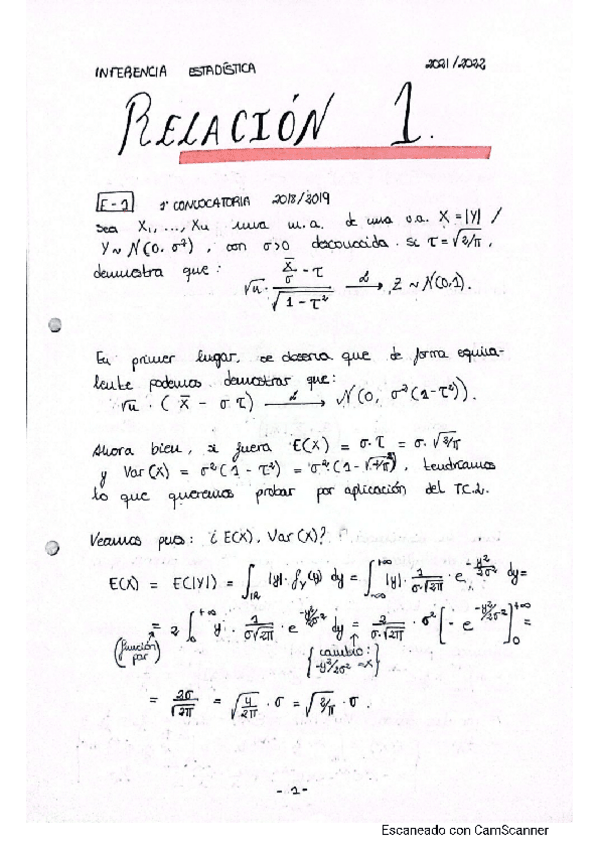 INFERENCIA ESTADÍSTICA 2021/2022
RELACIÓN 1.
E-1 1ª CONVOCATORIA 2018/2019
Sea X₁, ..., Xn una m.a. de una v.a. X = |Y| /
Y ~ N(0, σ²), con σ>0 desconocida. Si τ = √2/π,
demuestra que: √n · (X̄/σ - τ)/√(1 - τ²) →^L Z ~ N(0,1).
En primer lugar, se observa que de forma equiva-
lente podemos demostrar que:
√n · ( X̄ - σ τ ) →^L N(0, σ²(1-τ²)).
Ahora bien, si fuera E(X) = σ·τ = σ·√2/π
y Var(X) = σ²(1 - τ²) = σ²·(1- ), tendríamos
lo que queremos probar por aplicación del T.C.L.
Veamos pues: ¿E(X), Var(X)?
E(X) = E(|Y|) = ∫_ℝ |y|· f_Y(y) dy = ∫_{-∞}^{+∞} |y| · 1/(σ·√2π) · e^{-y²/2σ²} dy =
= 2 ∫_0^{+∞} y · 1/(σ√2π) · e^{-y²/2σ²} dy = 2/(σ·√2π) · σ² [ - e^{-y²/2σ²} ]_0^{+∞} =
(función par) {cambio: -y²/2σ² = x}
= 2σ/√2π = √4/2π · σ = √2/π · σ.
- 1 -
Escaneado con CamScanner